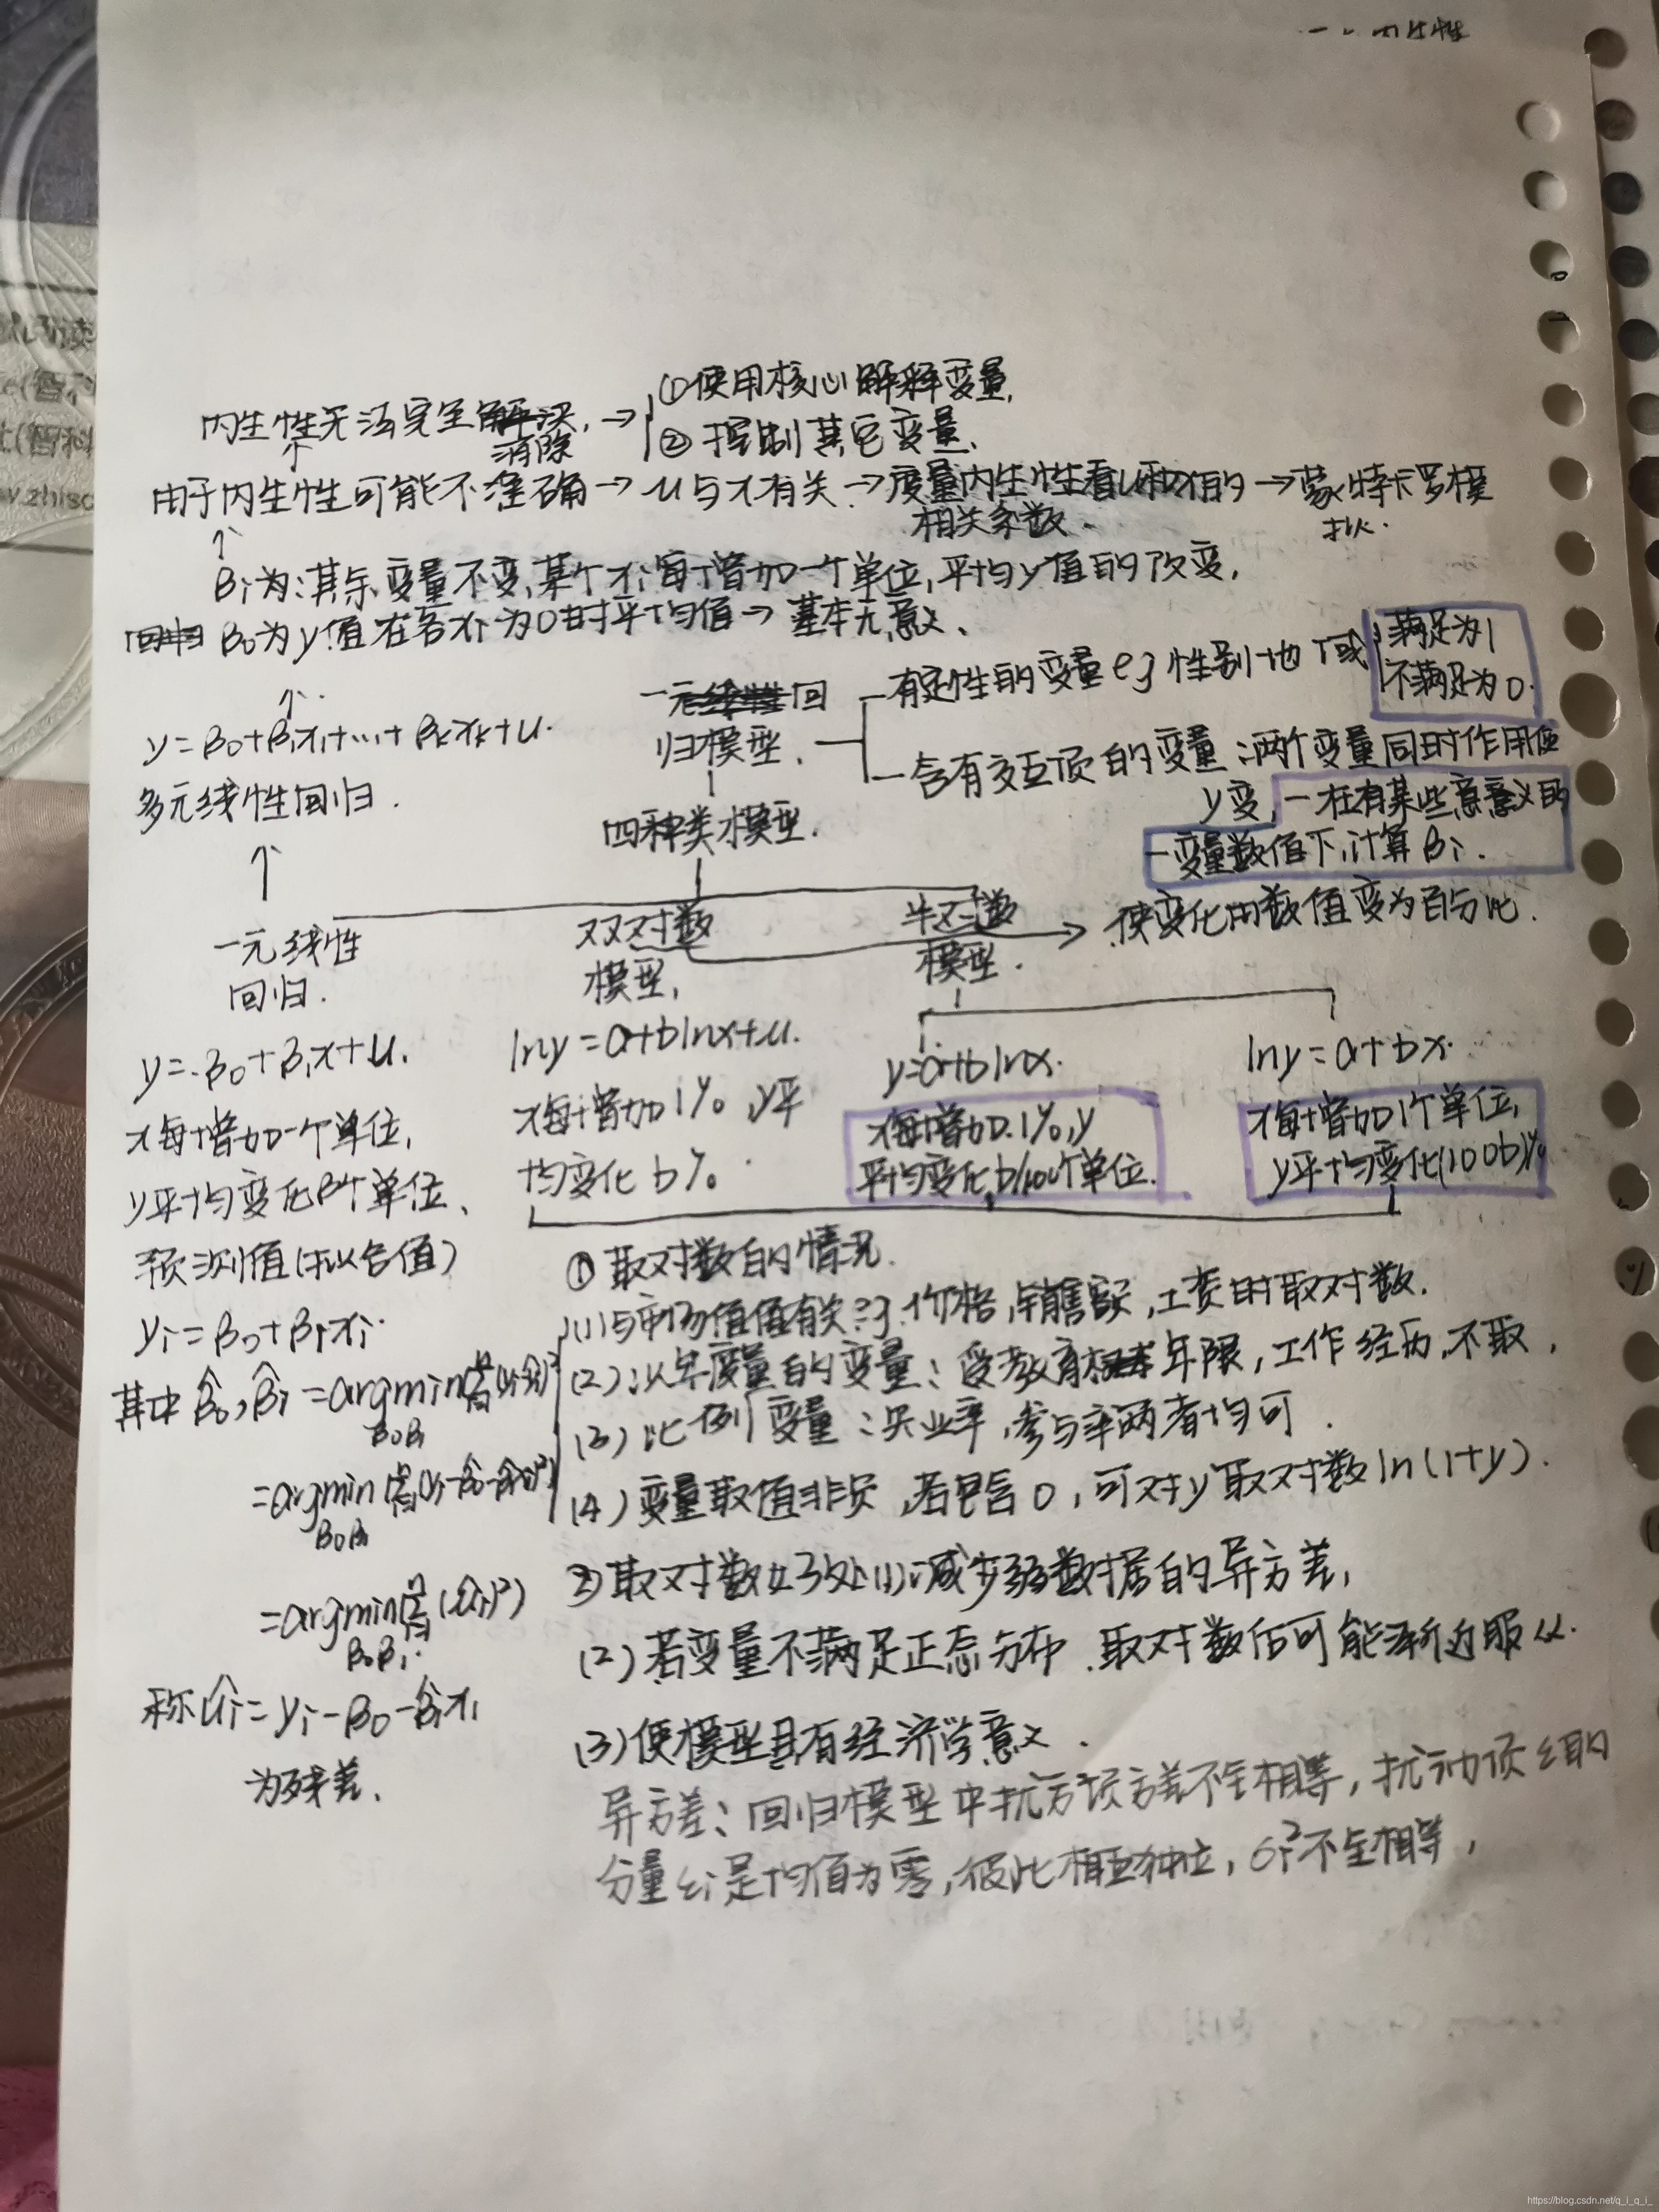 内生性
内生性无法完全消除, → ①使用核心解释变量,
②控制其它变量,
由于内生性可能不准确 → u与x有关 → 度量内生性看u和x值的相关系数. → 蒙特卡罗模拟.
βi为:其余变量不变,某个xi每增加一个单位,平均y值的改变,
β0为y值在各xi为0时平均值 → 基本无意义、
y=β0+β1x1+...+βkxk+u.
多元线性回归.
一元回
归模型.
有定性的变量 eg 性别 地域
满足为1
不满足为0.
含有交互项的变量:两个变量同时作用使
y变, 一在有某些意义的
一变量数值下,计算βi.
四种类模型.
一元线性
回归.
双对数
模型,
半对数
模型.
使变化的数值变为百分比.
y=β0+β1x+u.
x每增加一个单位,
y平均变化β个单位、
预测值(拟合值)
yi=β0+β1xi.
lny=a+blnx+u.
x每增加1%,y平
均变化b%.
y=a+blnx.
x每增加1%,y
平均变化b/100个单位.
lny=a+bx.
x每增加1个单位,
y平均变化(100b)%
其中β̂0,β̂1=argmin
β0β1
=argmin
β0β1
=argmin(Σ(ûi)²)
β0β1
称ûi=yi-β0-β̂1xi
为残差、
①取对数的情况.
(1)与市场价值有关 eg:价格,销售额,工资时取对数.
(2)以年度量的变量:受教育年限,工作经历,不取,
(3)比例变量:失业率,参与率两者均可.
(4)变量取值非负,若包含0,可对y取对数ln(1+y).
②取对数好处(1)减少数据的异方差,
(2)若变量不满足正态分布,取对数后可能渐近服从.
(3)使模型具有经济学意义.
异方差:回归模型中扰动项方差不全相等,扰动项ε的
分量εi是均值为零,彼此相互独立,σi²不全相等,
https://blog.csdn.net/q_i_q_i_